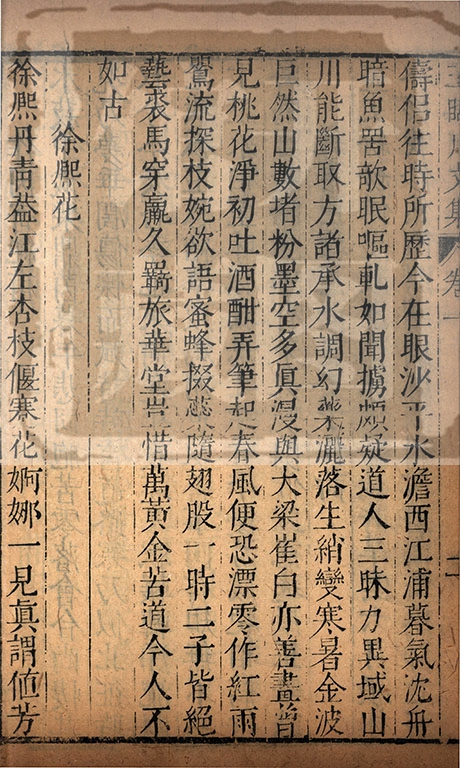 王臨川文集 卷一 一
儔侶往時所歷今在眼沙平水澹西江浦暮氣沈舟
暗魚罟欹眠嘔軋如聞擄頗疑道人三昧力異域山
川能斷取方諸承水調幻藥灑落生綃變寒暑金波
巨然山數堵粉墨空多真漫與大梁崔白亦善畫曾
見桃花淨初吐酒酣弄筆起春風便恐漂零作紅雨
鸎流探枝婉欲語蜜蜂掇蘂隨翅股一時二子皆絕
藝裘馬穿羸久羇旅華堂豈惜萬黃金苦道今人不
如古
徐熈花
徐熈丹青葢江左杏枝偃蹇花婀娜一見真謂値芳